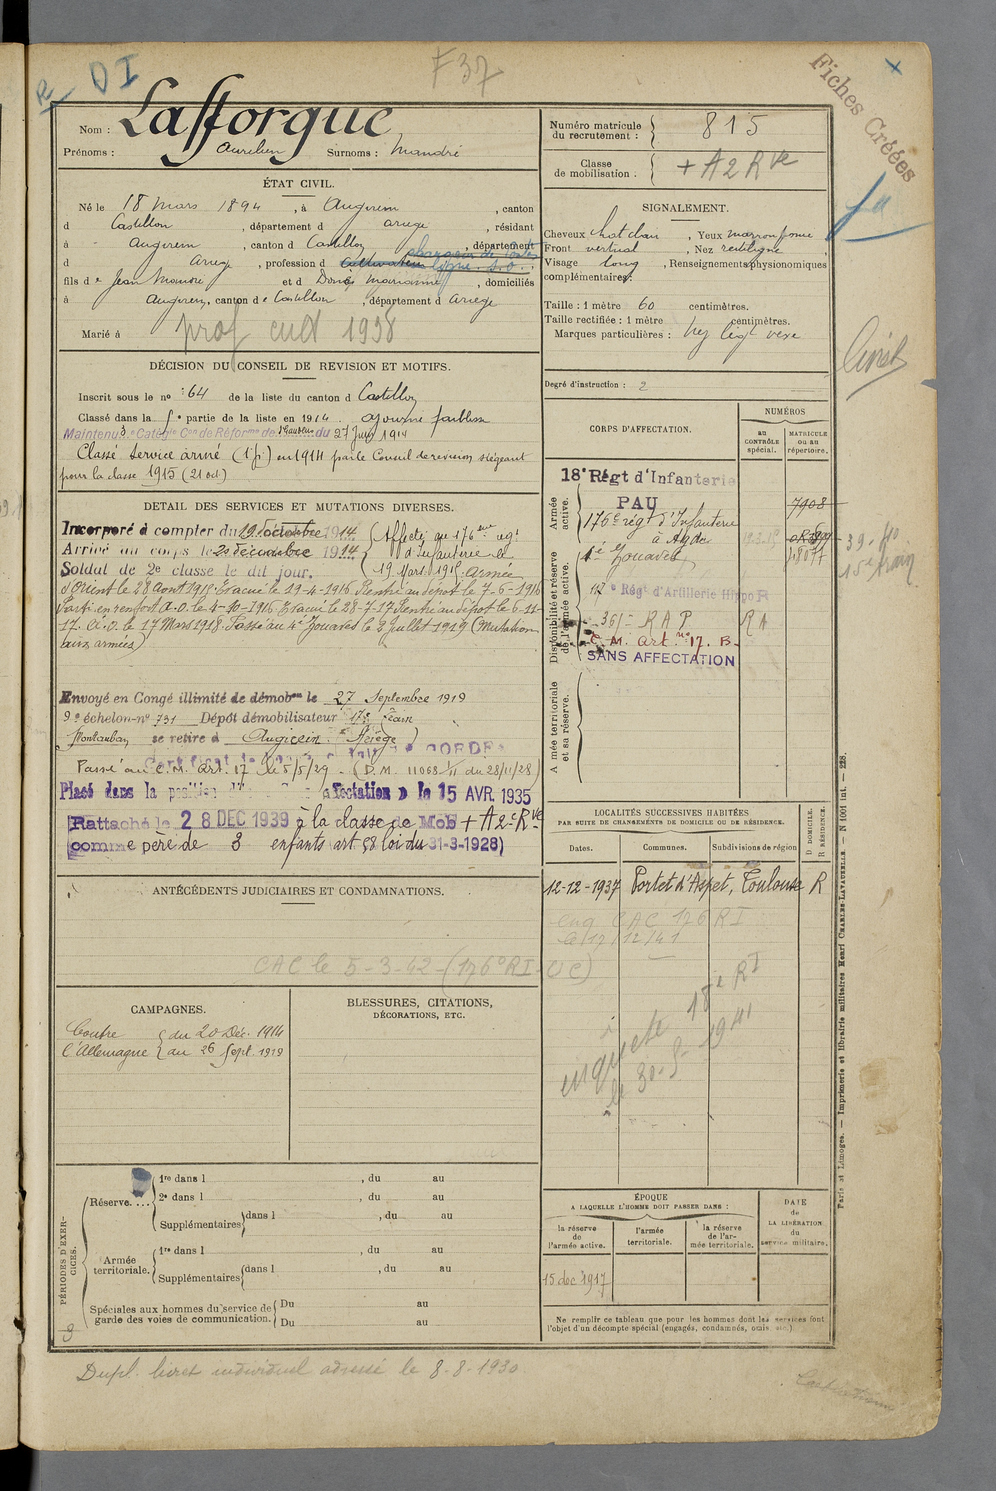 F 37
DI
Fiches Créées
Nom : Lafforgue
Prénoms : Aurelien Surnoms : Mandré
ÉTAT CIVIL.
Né le 18 mars 1894, à Augirein, canton
d Castillon, département d ariege, résidant
à Augirein, canton d Castillon, département
d Ariege, profession d cultivateur
fils de Jean Mandré et d Marianne, domiciliés
à Augirein, canton de Castillon, département d Ariege
Marié à
prof 1938
DÉCISION DU CONSEIL DE REVISION ET MOTIFS.
Inscrit sous le no 64 de la liste du canton d Castillon
Classé dans la 5e partie de la liste en 1914 ajourné faiblesse
Maintenu 3e Catégie Con de Réforme de du 27 1914
Classé Service armé (1e p.) en 1914 par le Conseil de revision siégeant
pour la classe 1915 (21 oct)
DETAIL DES SERVICES ET MUTATIONS DIVERSES.
Incorporé à compter du 19 octobre 1914 Affecté au 176eme regt
Arrivé au corps le 20 décembre 1914 d'infanterie le
Soldat de 2e classe le dit jour. 19 Mars 1915. Armée
d'Orient le 28 Aout 1915. Evacué le 19-4-1916 Rentré au dépôt le 7-6-1916
Parti en renfort A.O. le 4-10-1916. Evacué le 28-7-17 Rentré au dépôt le 6-11-
17. A.O. le 17 Mars 1918. Passé au 4e Zouaves le 9 Juillet 1919 (Mutation
aux armées)
Envoyé en Congé illimité de démobon le 27 Septembre 1919
9e échelon-no 731 Dépôt démobilisateur 17e Train
Montauban se retire à Augirein Ariège
Passé au C.M. Art. 17 le 5/5/29 - (D.M. 11068/11 du 28/11/28)
Placé dans la position affectation le 15 AVR. 1935
Rattaché le 28 DEC 1939 à la classe de Mob + A 2e Rve
comme père de 3 enfants art 58 loi du 31-3-1928)
ANTÉCÉDENTS JUDICIAIRES ET CONDAMNATIONS.
CAC le 5-3-42 (176e RI-UC)
CAMPAGNES.
Contre du 20 Déc. 1914
l'Allemagne au 26 Sept. 1919
BLESSURES, CITATIONS,
DÉCORATIONS, ETC.
PÉRIODES D'EXERCICES.
Réserve....
1re dans l , du au
2e dans l , du au
Supplémentaires dans l , du au
Armée
territoriale.
1re dans l , du au
Supplémentaires dans l , du au
Spéciales aux hommes du service de
garde des voies de communication.
Du au
Du au
Dupl. livret individuel adressé le 8-8-1930
Numéro matricule
du recrutement : 815
Classe
de mobilisation : + A 2 Rve
SIGNALEMENT.
Cheveux chatain, Yeux marron jaune
Front vertical, Nez rectiligne
Visage long, Renseignements physionomiques
complémentaires :
Taille : 1 mètre 60 centimètres.
Taille rectifiée : 1 mètre centimètres.
Marques particulières :
Degré d'instruction : 2
CORPS D'AFFECTATION.
NUMÉROS
au
CONTRÔLE
spécial.
MATRICULE
ou au
répertoire.
Armée
active.
18e Régt d'Infanterie
PAU
7908
176e régt d'Infanterie
à Agde
4e Zouaves
18077
Disponibilité et réserve
de l'armée active.
117e Régt d'Artillerie Hippo R
361e R A P R A
C. M. Art. no 17. B.
SANS AFFECTATION
Armée territoriale
et sa réserve.
39-40
15e train
LOCALITÉS SUCCESSIVES HABITÉES
PAR SUITE DE CHANGEMENTS DE DOMICILE OU DE RÉSIDENCE.
Dates. Communes. Subdivisions de région
D DOMICILE.
R RÉSIDENCE.
12-12-1937 Portet d'Aspet, Toulouse R
enq CAC 176 RI
le 17/12/41
enquete 18e RI
le 30-5-1941
ÉPOQUE
A LAQUELLE L'HOMME DOIT PASSER DANS :
la réserve
de
l'armée active.
l'armée
territoriale.
la réserve
de l'armée
territoriale.
DATE
de
LA LIBÉRATION
du
service militaire.
15 dec 1917
Ne remplir ce tableau que pour les hommes dont les services font
l'objet d'un décompte spécial (engagés, condamnés, omis, etc.)
Paris et Limoges. — Imprimerie et librairie militaires Henri CHARLES-LAVAUZELLE. — N 1001 int. — 228.